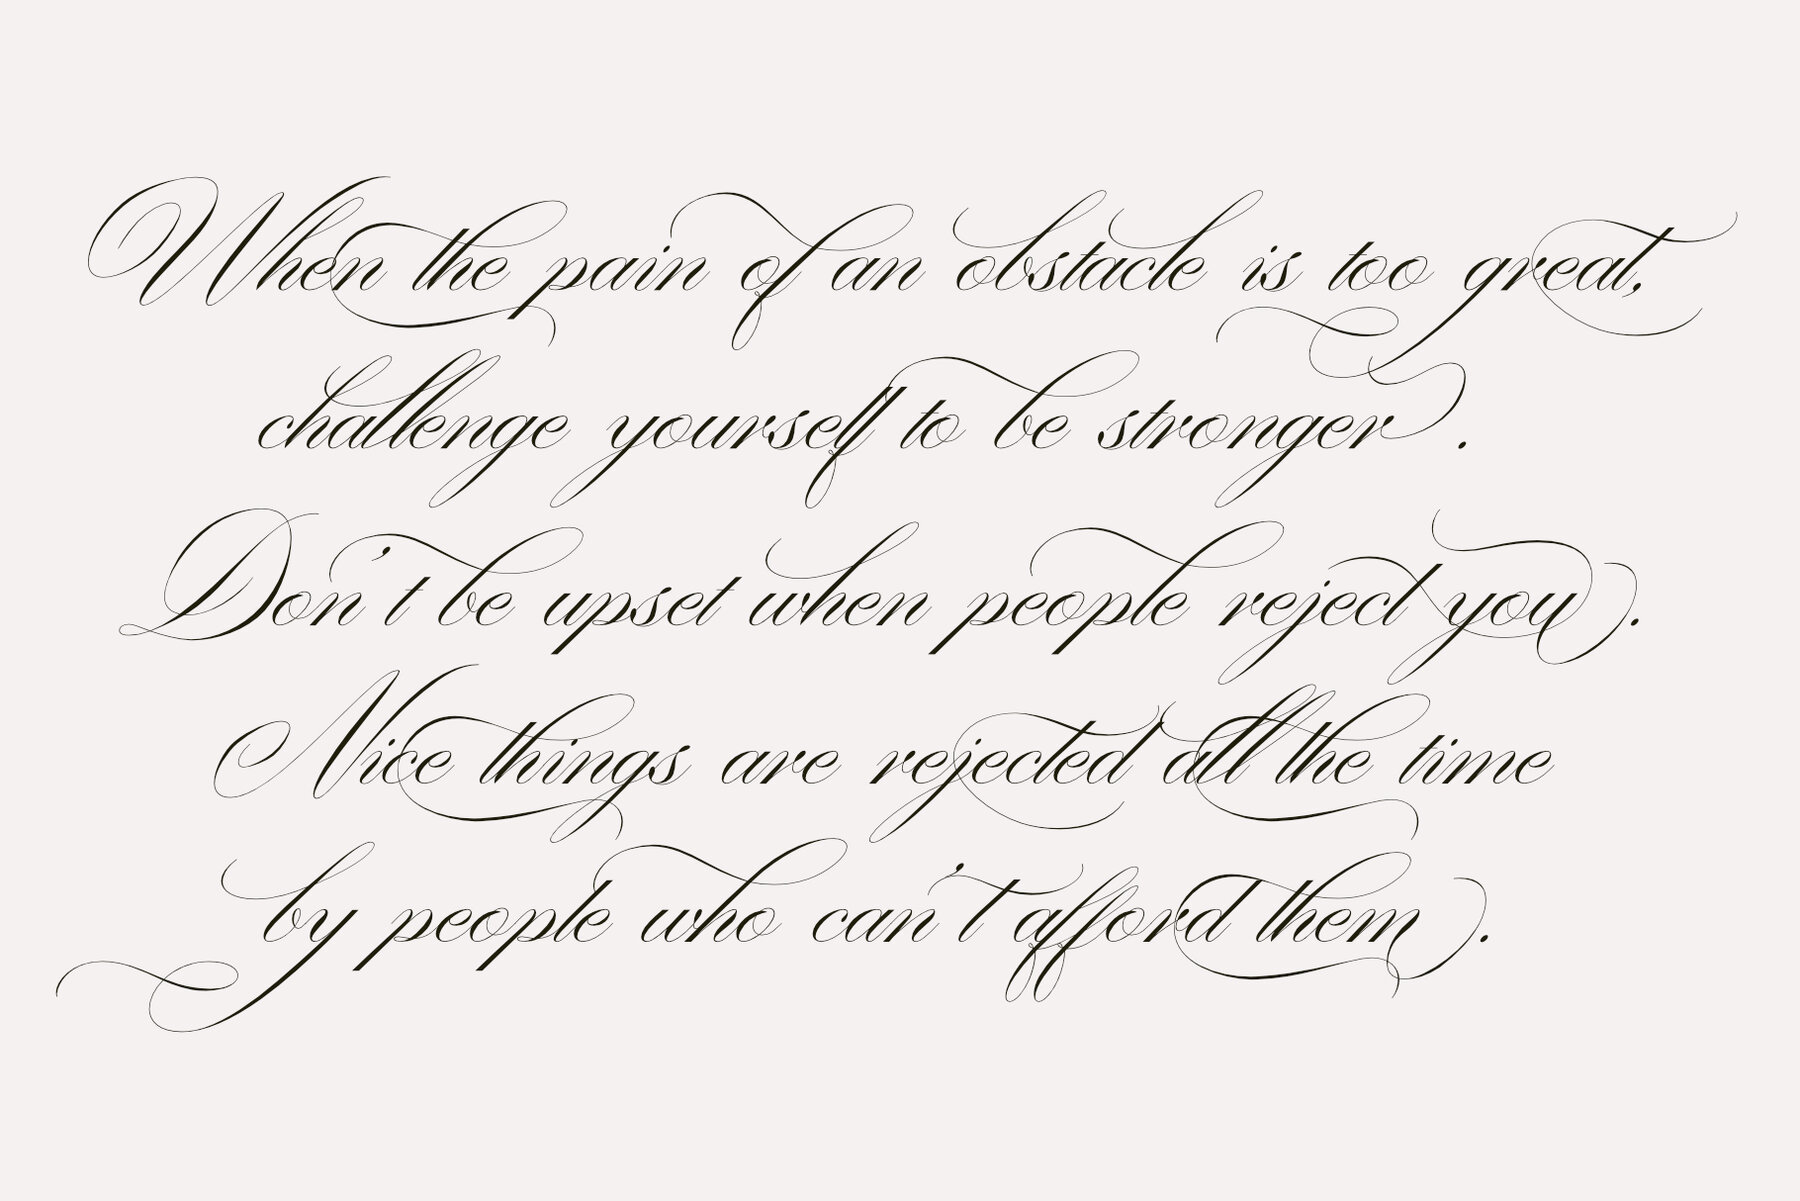 When the pain of an obstacle is too great,
challenge yourself to be stronger.
Don't be upset when people reject you.
Nice things are rejected all the time
by people who can't afford them.